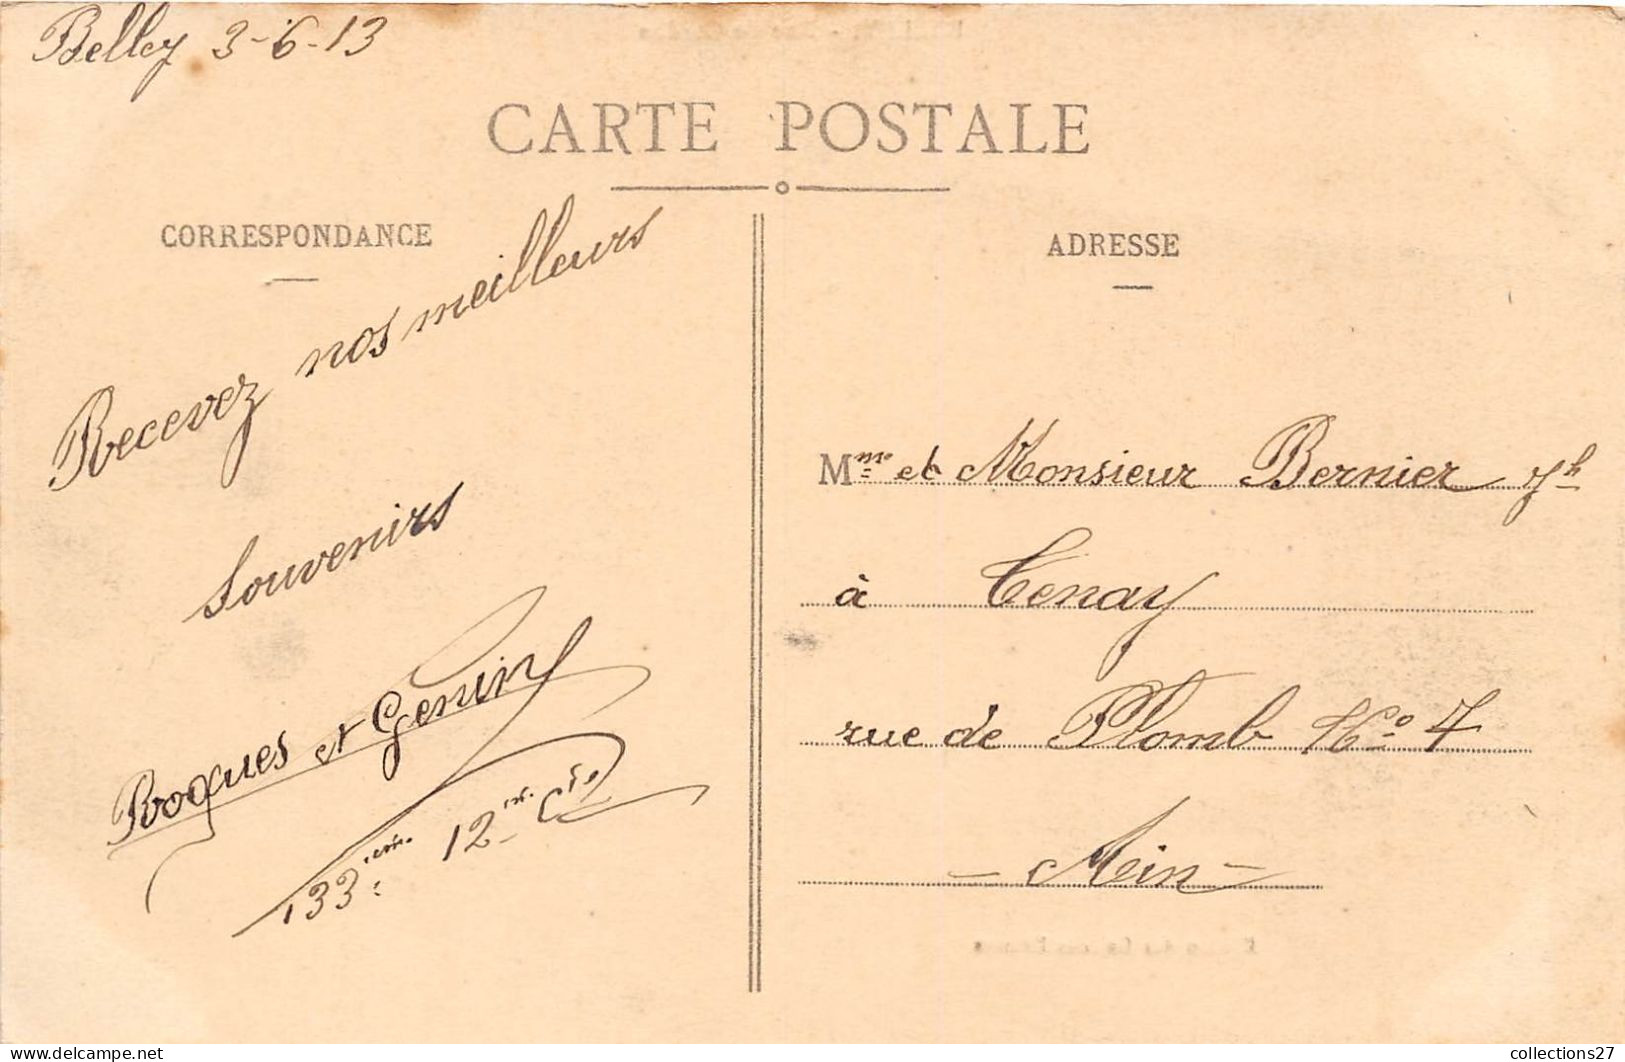 Belley 3-6-13
CARTE POSTALE
CORRESPONDANCE
Recevez nos meilleurs
Souvenirs
Roques et Genin
133ème 12me Cie
ADRESSE
Mme et Monsieur Bernier Jh
à Tenay
rue de Plomb No 7
- Ain -
collections27